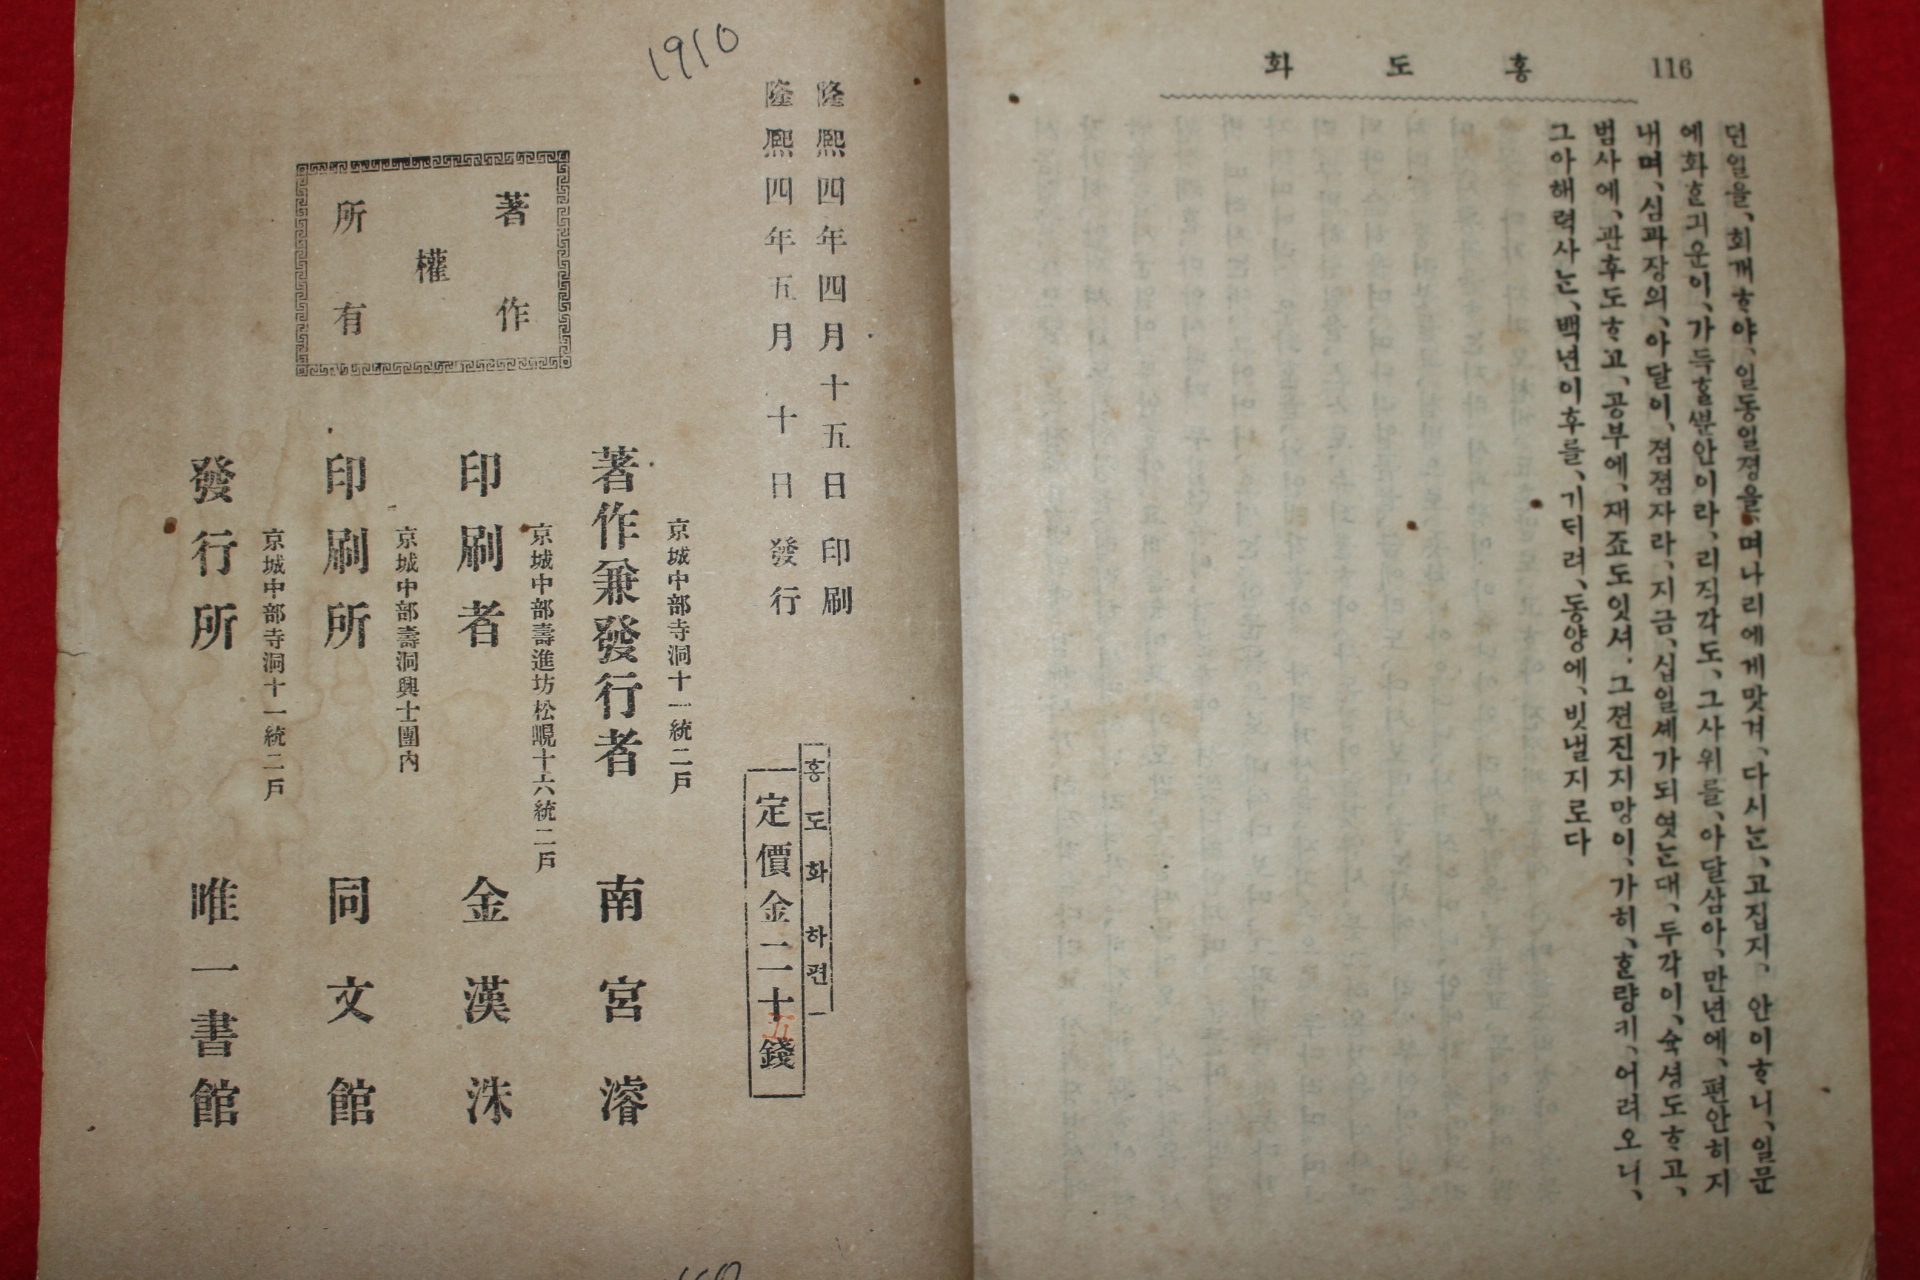 116 홍도화
던일을、회개ᄒᆞ야、일동일졍을、며나리에게맛겨、다시ᄂᆞᆫ、고집지、안이ᄒᆞ니、일문
에화ᄒᆞᆫ긔운이、가득ᄒᆞᆯᄲᅮᆫ안이라、리직각도、그사위를、아달삼아、만년에、편안히지
내며、심과장의、아달이、졈졈자라、지금、십일셰가되엿ᄂᆞᆫ대、두각이、슉셩도ᄒᆞ고、
범사에、관후도ᄒᆞ고、공부에、재죠도잇셔、그젼진지망이、가히、ᄒᆞᆫ량키、어려오니、
그아해력사ᄂᆞᆫ、백년이후를、기ᄃᆞ려、동양에、빗낼지로다
1910
隆熙四年四月十五日印刷
隆熙四年五月十日發行
홍도화하편
定價金二十五錢
著作
權
所有
京城中部寺洞十一統二戶
著作兼發行者 南宮濬
京城中部壽進坊松峴十六統二戶
印刷者 金漢洙
京城中部壽洞興士團內
印刷所 同文館
京城中部寺洞十一統二戶
發行所 唯一書館